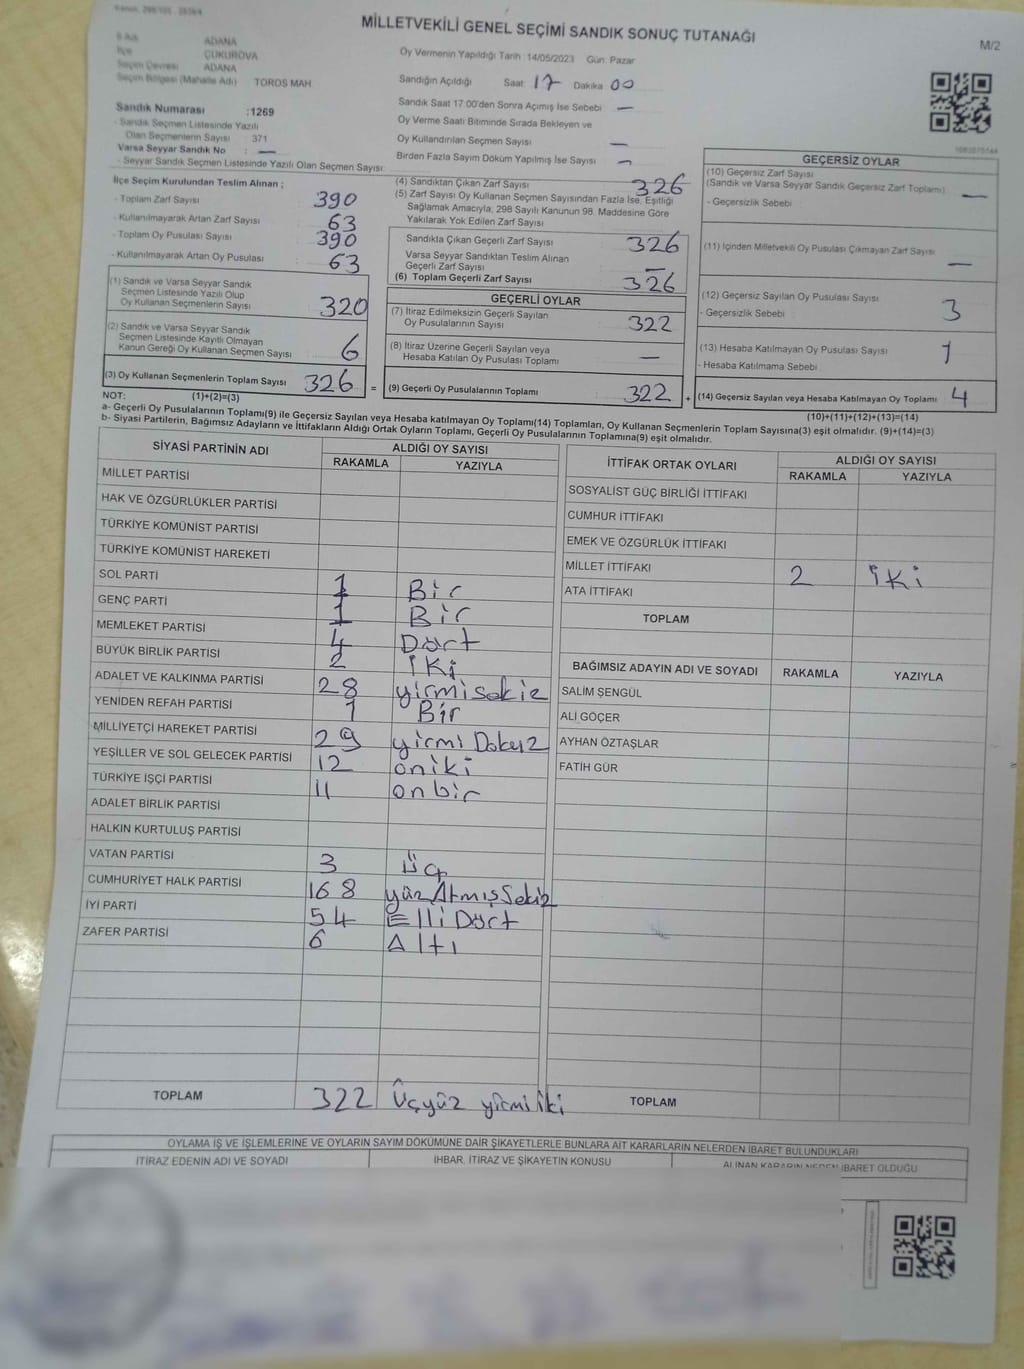 MİLLETVEKİLİ GENEL SEÇİMİ SANDIK SONUÇ TUTANAĞI
M/2
İlçe ÇUKUROVA
Seçim Çevresi ADANA
Seçim Bölgesi (Mahalle Adı) TOROS MAH
Sandık Numarası :1269
- Sandık Seçmen Listesinde Yazılı
Olan Seçmenlerin Sayısı : 371
Varsa Seyyar Sandık No : —
- Seyyar Sandık Seçmen Listesinde Yazılı Olan Seçmen Sayısı:
Oy Vermenin Yapıldığı Tarih :14/05/2023 Gün: Pazar
Sandığın Açıldığı Saat: 17 Dakika 00
Sandık Saat 17:00'den Sonra Açımış İse Sebebi —
Oy Verme Saati Bitiminde Sırada Bekleyen ve
Oy Kullandırılan Seçmen Sayısı —
Birden Fazla Sayım Döküm Yapılmış İse Sayısı —
İlçe Seçim Kurulundan Teslim Alınan ;
- Toplam Zarf Sayısı 390
- Kullanılmayarak Artan Zarf Sayısı 63
- Toplam Oy Pusulası Sayısı 390
- Kullanılmayarak Artan Oy Pusulası 63
(1) Sandık ve Varsa Seyyar Sandık
Seçmen Listesinde Yazılı Olup
Oy Kullanan Seçmenlerin Sayısı 320
(2) Sandık ve Varsa Seyyar Sandık
Seçmen Listesinde Kayıtlı Olmayan
Kanun Gereği Oy Kullanan Seçmen Sayısı 6
(3) Oy Kullanan Seçmenlerin Toplam Sayısı 326 =
(4) Sandıktan Çıkan Zarf Sayısı 326
(5) Zarf Sayısı Oy Kullanan Seçmen Sayısından Fazla İse, Eşitliği
Sağlamak Amacıyla, 298 Sayılı Kanunun 98. Maddesine Göre
Yakılarak Yok Edilen Zarf Sayısı
Sandıkta Çıkan Geçerli Zarf Sayısı 326
Varsa Seyyar Sandıktan Teslim Alınan
Geçerli Zarf Sayısı —
(6) Toplam Geçerli Zarf Sayısı 326
GEÇERLİ OYLAR
(7) İtiraz Edilmeksizin Geçerli Sayılan
Oy Pusulalarının Sayısı 322
(8) İtiraz Üzerine Geçerli Sayılan veya
Hesaba Katılan Oy Pusulası Toplamı —
(9) Geçerli Oy Pusulalarının Toplamı 322 +
GEÇERSİZ OYLAR
(10) Geçersiz Zarf Sayısı
(Sandık ve Varsa Seyyar Sandık Geçersiz Zarf Toplamı) —
- Geçersizlik Sebebi
(11) İçinden Milletvekili Oy Pusulası Çıkmayan Zarf Sayısı —
(12) Geçersiz Sayılan Oy Pusulası Sayısı 3
- Geçersizlik Sebebi
(13) Hesaba Katılmayan Oy Pusulası Sayısı 1
- Hesaba Katılmama Sebebi
(14) Geçersiz Sayılan veya Hesaba Katılmayan Oy Toplamı 4
NOT: (1)+(2)=(3) (10)+(11)+(12)+(13)=(14)
a- Geçerli Oy Pusulalarının Toplamı(9) ile Geçersiz Sayılan veya Hesaba katılmayan Oy Toplamı(14) Toplamları, Oy Kullanan Seçmenlerin Toplam Sayısına(3) eşit olmalıdır. (9)+(14)=(3)
b- Siyasi Partilerin, Bağımsız Adayların ve İttifakların Aldığı Ortak Oyların Toplamı, Geçerli Oy Pusulalarının Toplamına(9) eşit olmalıdır.
SİYASİ PARTİNİN ADI ALDIĞI OY SAYISI
RAKAMLA YAZIYLA
MİLLET PARTİSİ
HAK VE ÖZGÜRLÜKLER PARTİSİ
TÜRKİYE KOMÜNİST PARTİSİ
TÜRKİYE KOMÜNİST HAREKETİ
SOL PARTİ 1 Bir
GENÇ PARTİ 1 Bir
MEMLEKET PARTİSİ 4 Dört
BÜYÜK BİRLİK PARTİSİ 2 İKi
ADALET VE KALKINMA PARTİSİ 28 yirmisekiz
YENİDEN REFAH PARTİSİ 1 Bir
MİLLİYETÇİ HAREKET PARTİSİ 29 yirmi Dokuz
YEŞİLLER VE SOL GELECEK PARTİSİ 12 oniki
TÜRKİYE İŞÇİ PARTİSİ 11 onbir
ADALET BİRLİK PARTİSİ
HALKIN KURTULUŞ PARTİSİ
VATAN PARTİSİ 3 Üç
CUMHURİYET HALK PARTİSİ 168 yüzAtmışSekiz
İYİ PARTİ 54 ElliDört
ZAFER PARTİSİ 6 Altı
TOPLAM 322 Üçyüz yirmi iki
İTTİFAK ORTAK OYLARI ALDIĞI OY SAYISI
RAKAMLA YAZIYLA
SOSYALİST GÜÇ BİRLİĞİ İTTİFAKI
CUMHUR İTTİFAKI
EMEK VE ÖZGÜRLÜK İTTİFAKI
MİLLET İTTİFAKI 2 İKi
ATA İTTİFAKI
TOPLAM
BAĞIMSIZ ADAYIN ADI VE SOYADI RAKAMLA YAZIYLA
SALİM ŞENGÜL
ALİ GÖÇER
AYHAN ÖZTAŞLAR
FATİH GÜR
TOPLAM
OYLAMA İŞ VE İŞLEMLERİNE VE OYLARIN SAYIM DÖKÜMÜNE DAİR ŞİKAYETLERLE BUNLARA AİT KARARLARIN NELERDEN İBARET BULUNDUKLARI
İTİRAZ EDENİN ADI VE SOYADI İHBAR, İTİRAZ VE ŞİKAYETİN KONUSU ALINAN KARARIN NEDEN İBARET OLDUĞU